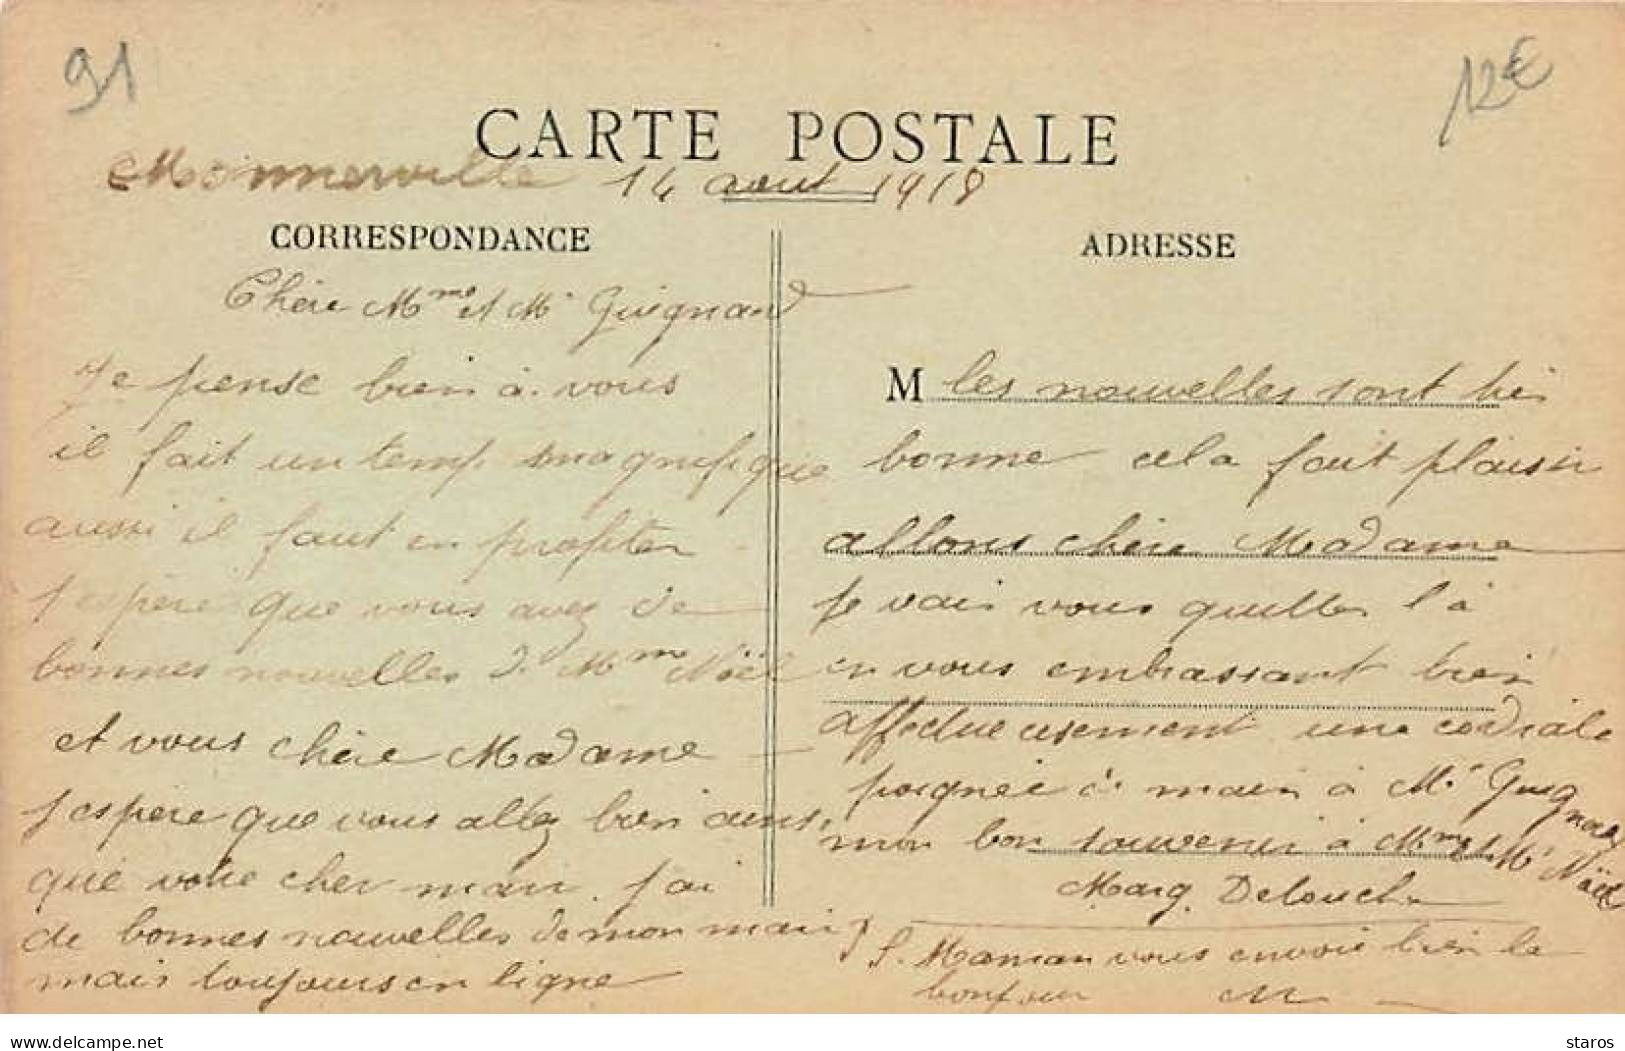 91
12€
CARTE POSTALE
Monnerville 14 aout 1918
CORRESPONDANCE
Chère Mme et Mr Guignard
Je pense bien à vous
il fait un temp magnifique
aussi il faut en profiter
j'espère que vous avez de
bonnes nouvelles de Mme Noël
et vous chère Madame
j'espère que vous allez bien ainsi
que votre cher mari. j'ai
de bonnes nouvelles de mon mari
mais toujours en ligne
ADRESSE
M les nouvelles sont très
bonne cela fait plaisir
allons chère Madame
je vais vous quitter là
en vous embrassant bien
affectueusement une cordiale
poignée de main à Mr Guignard
mon bon souvenir à Mme et Mr Noël
Marg. Delouche
P.S. Maman vous envoie bien le
bonjour M
delcampe.net
staros